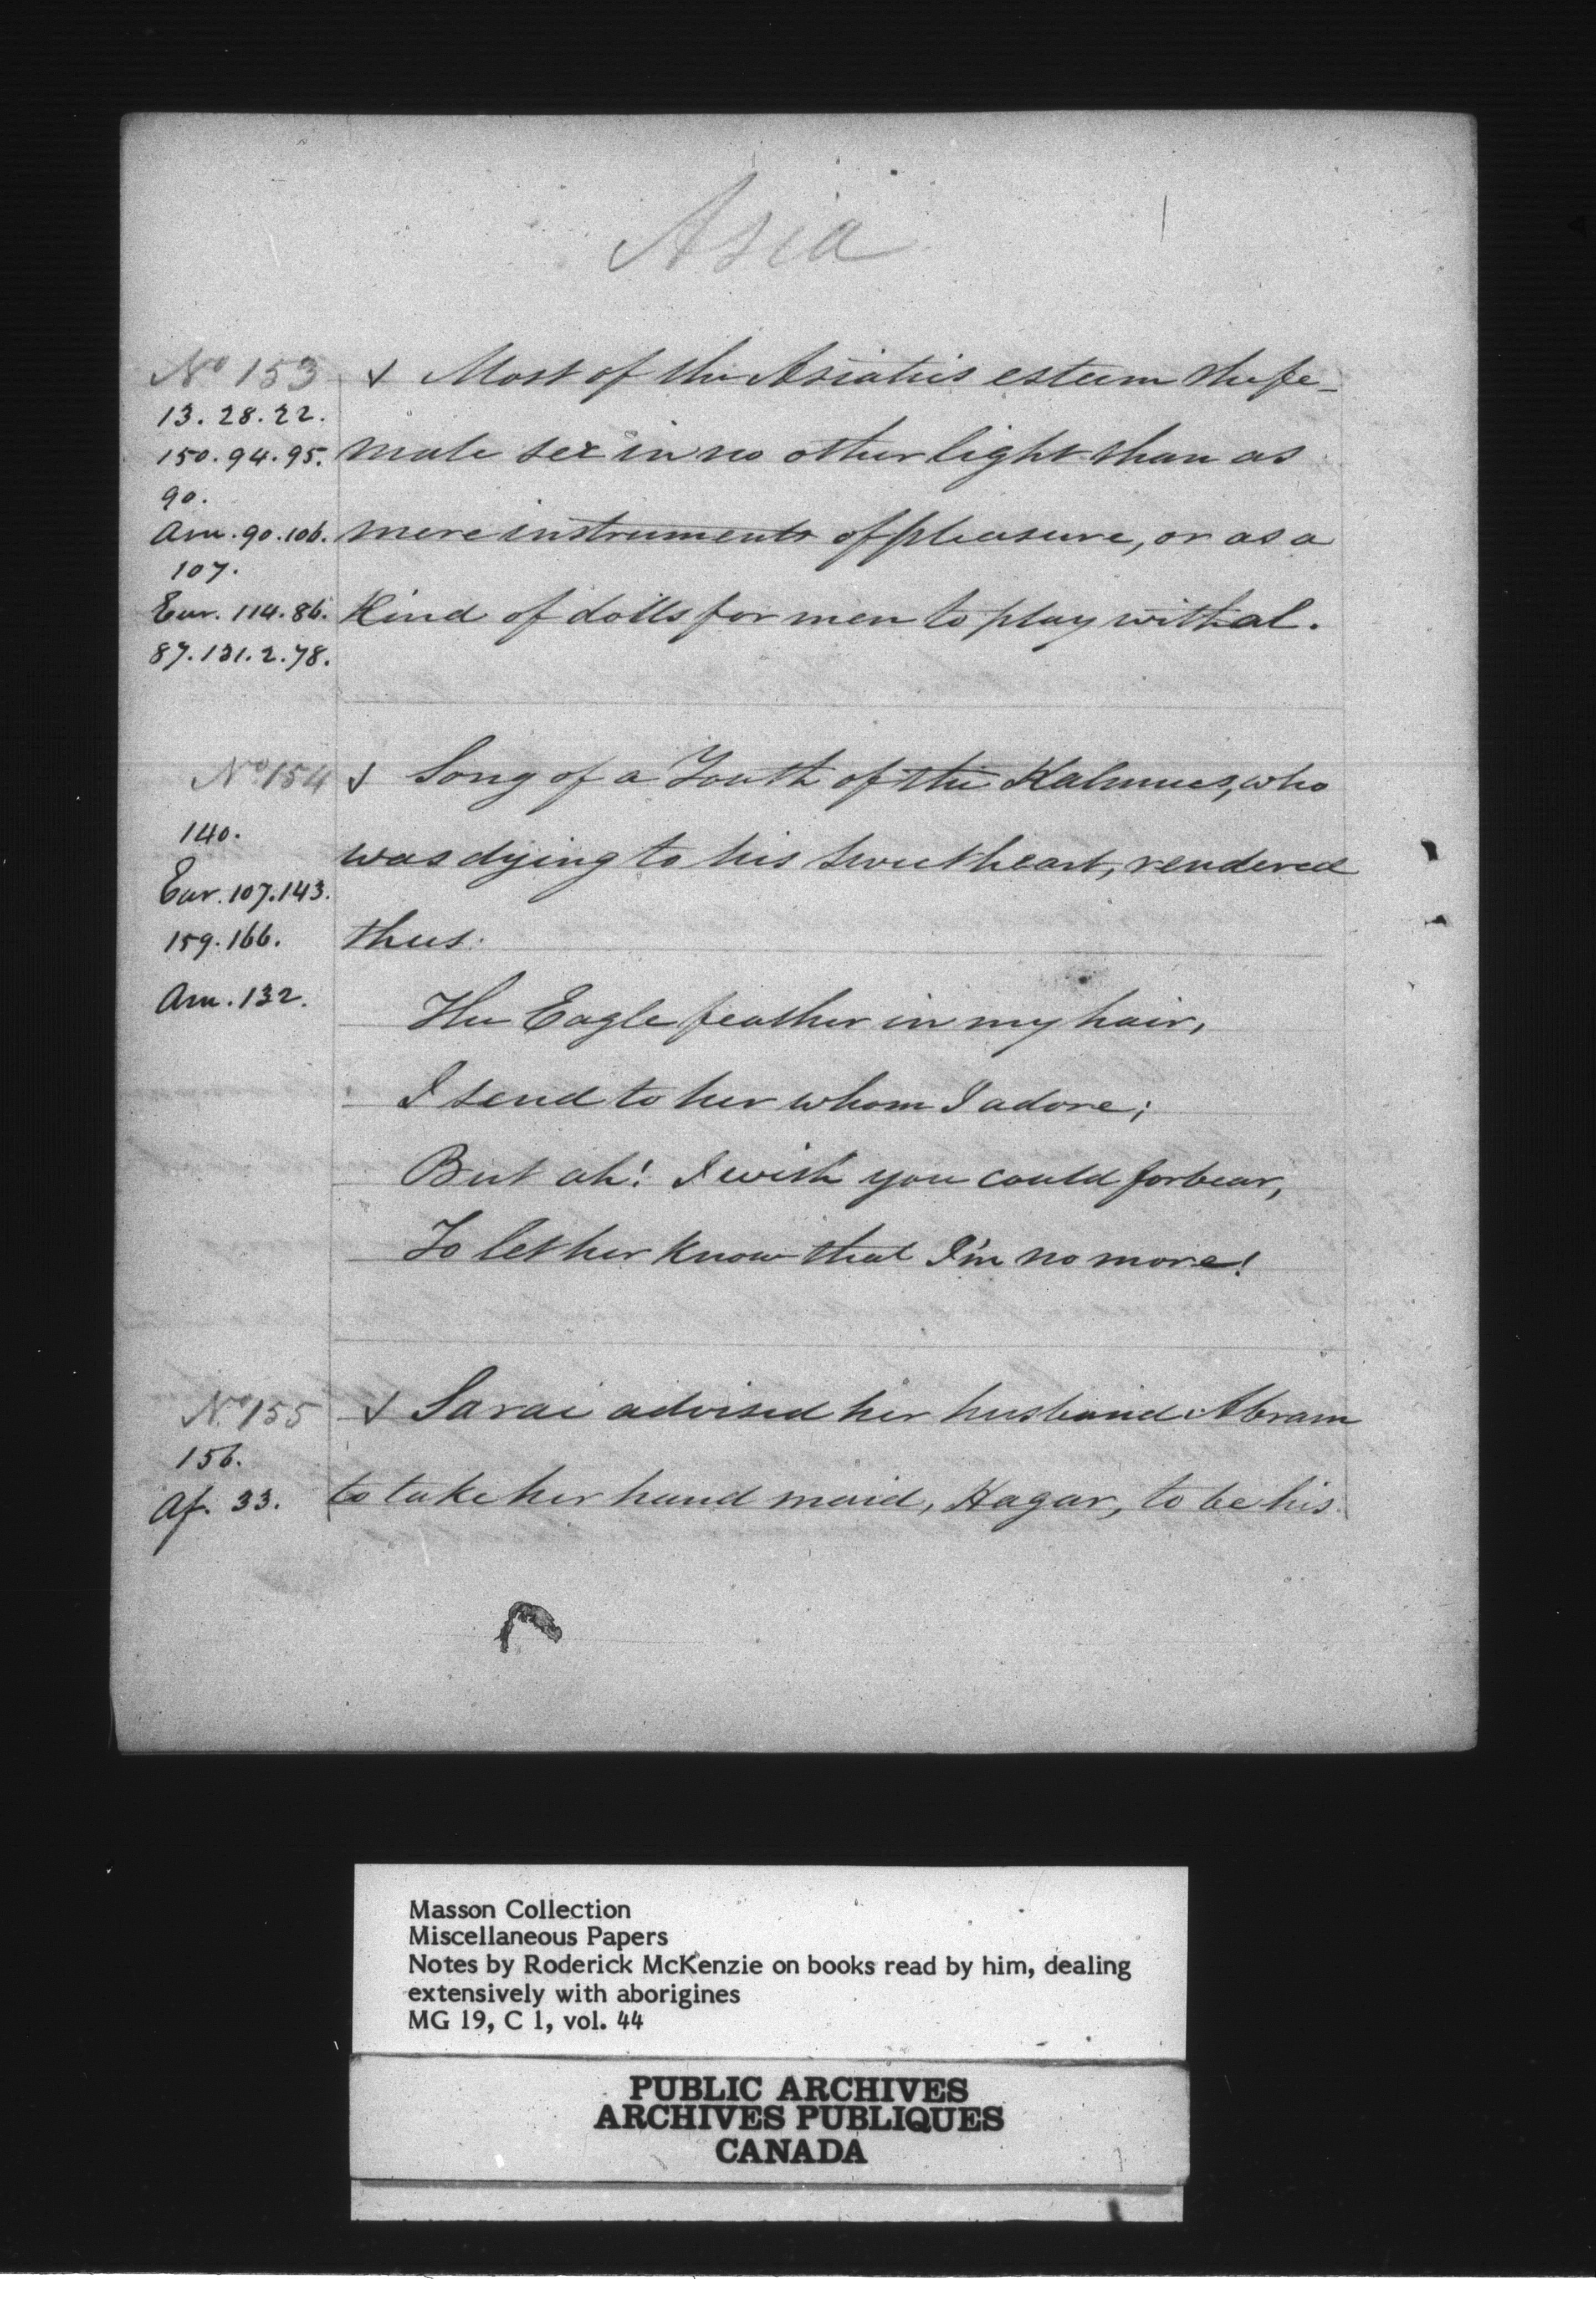 Asia
No 153
13. 28. 22.
150. 94. 95.
90.
Am. 90. 106.
107.
Eur. 114. 86.
87. 131. 2. 78.
Most of the Asiatics esteem the fe-
male sex in no other light than as
mere instruments of pleasure, or as a
Kind of dolls for men to play withal.
No 154
140.
Eur. 107. 143.
159. 166.
Am. 132.
Song of a Youth of the Kalmucs, who
was dying to his sweetheart, rendered
thus.
The Eagle feather in my hair,
I send to her whom I adore;
But ah! I wish you could forbear,
To let her know that I'm no more!
No 155
156.
Af. 33.
Sarai advised her husband Abram
to take her hand maid, Hagar, to be his
Masson Collection
Miscellaneous Papers
Notes by Roderick McKenzie on books read by him, dealing
extensively with aborigines
MG 19, C 1, vol. 44
PUBLIC ARCHIVES
ARCHIVES PUBLIQUES
CANADA